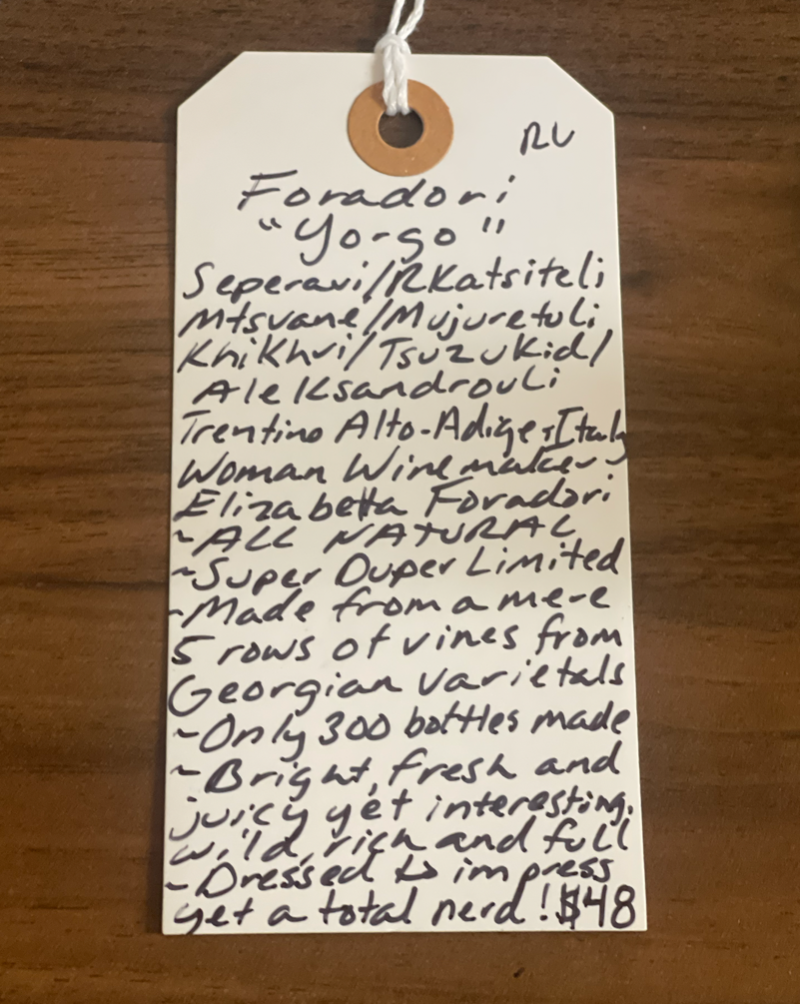 RU
Foradori
"Yorgo"
Seperavi/RKatsiteli
Mtsvane/Mujuretuli
Khikhvi/Tsuzukid/
Aleksandrouli
Trentino Alto-Adige, Italy
Woman Winemaker
Elizabetta Foradori
~ALL NATURAL
~Super Duper Limited
~Made from a mere
5 rows of vines from
Georgian varietals
~Only 300 bottles made
~Bright, fresh and
juicy yet interesting,
wild, rich and full
~Dressed to impress
yet a total nerd! $48